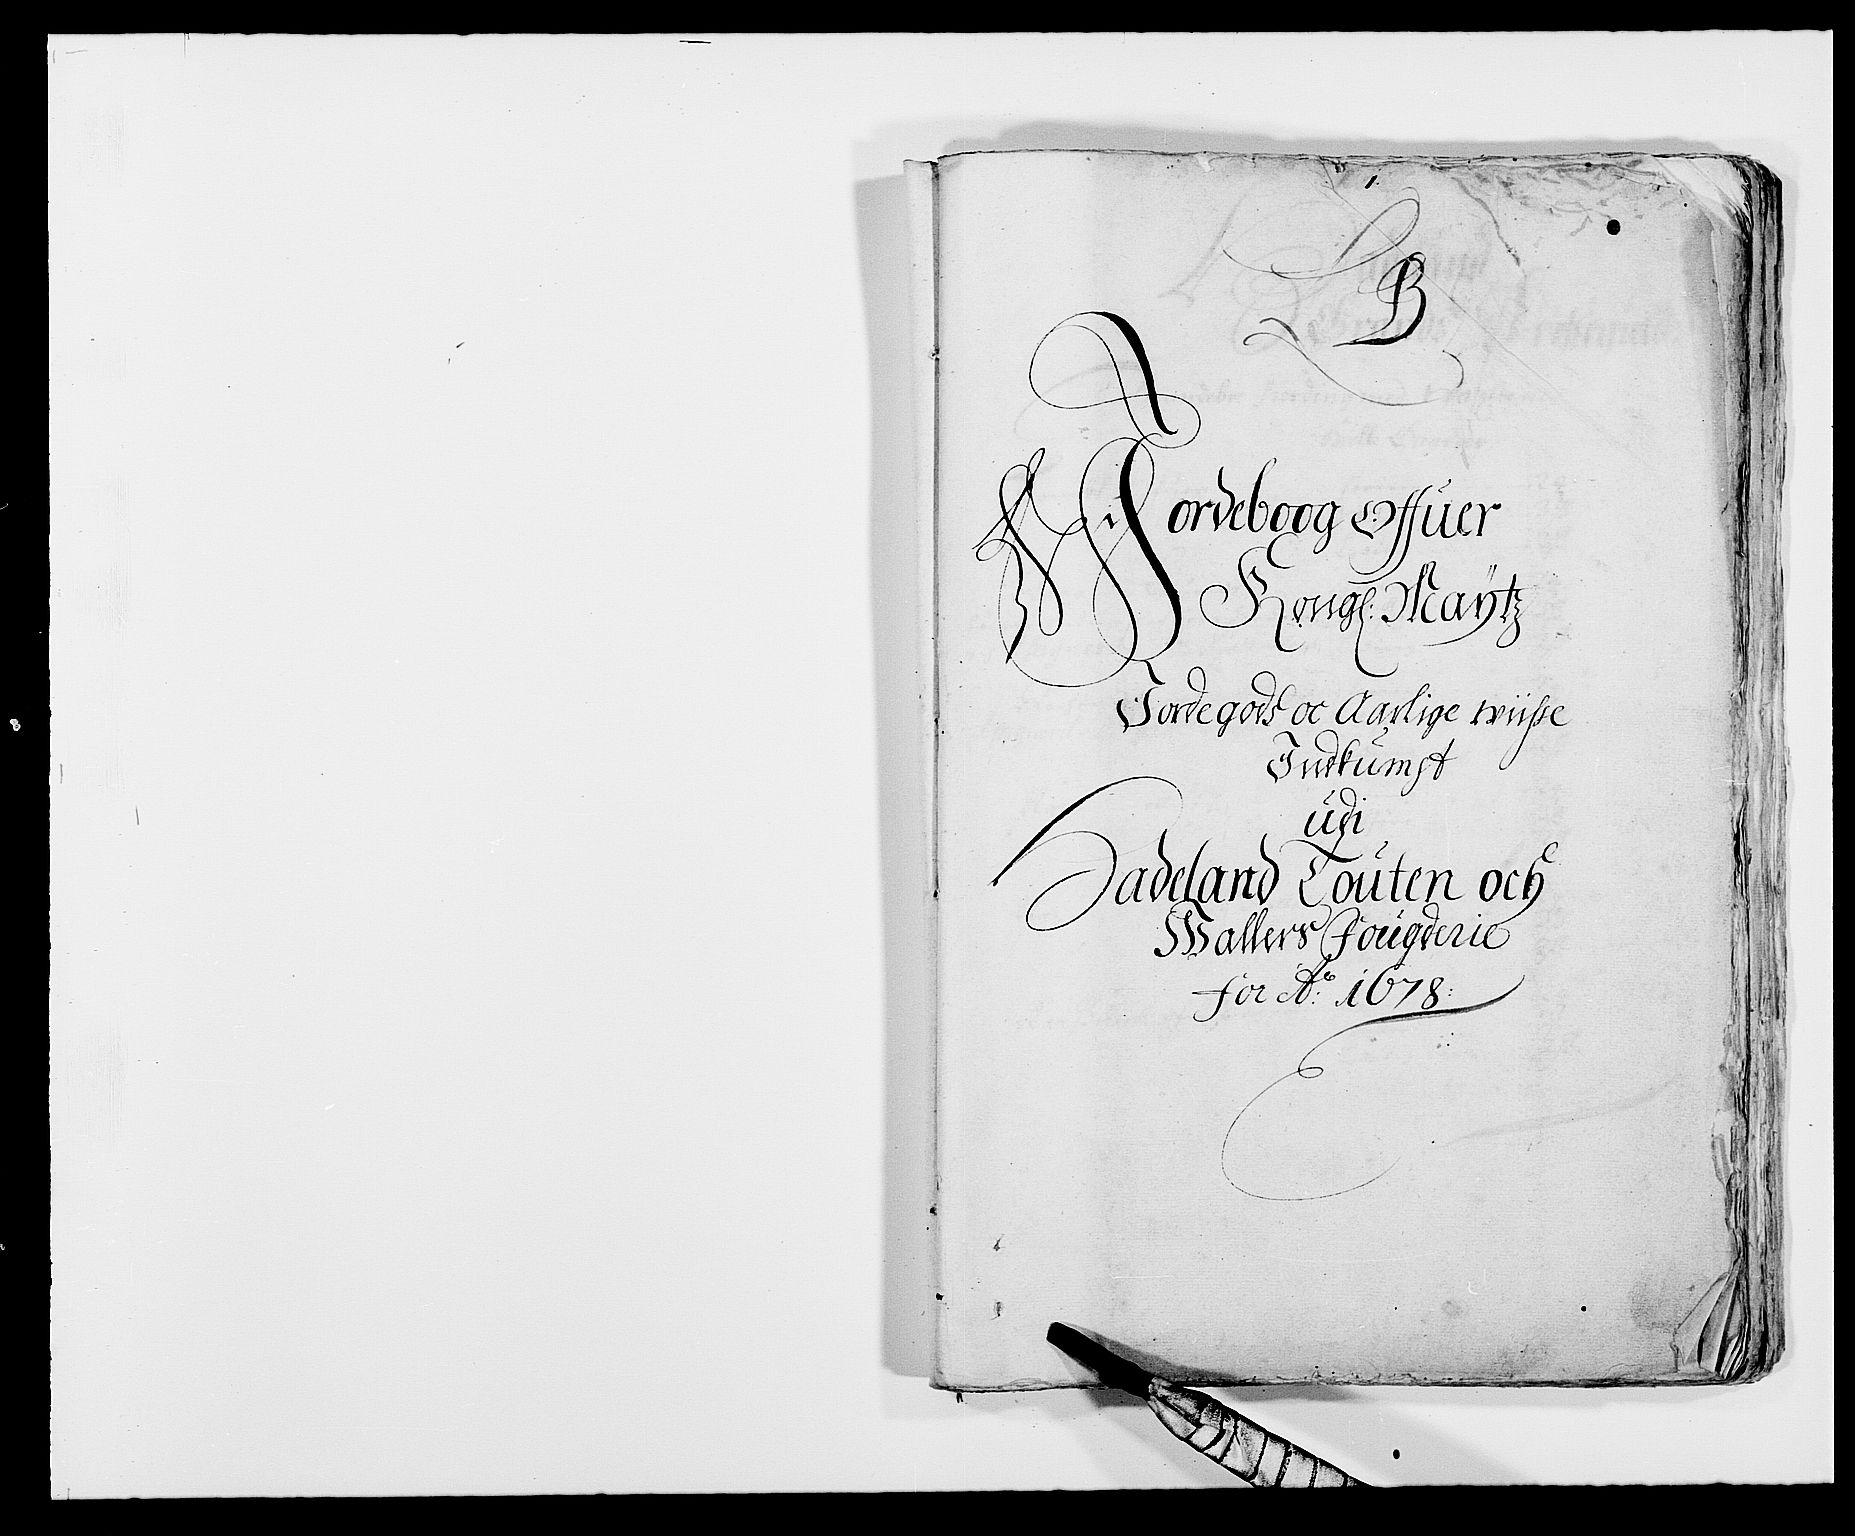 B
Jordeboog Offuer
Kongl: Maÿtz
Jordegods oc Aarlige wiisse
Indkumst
udi
Hadeland Touten och
Wallers Fougderie
for Ao: 1678: